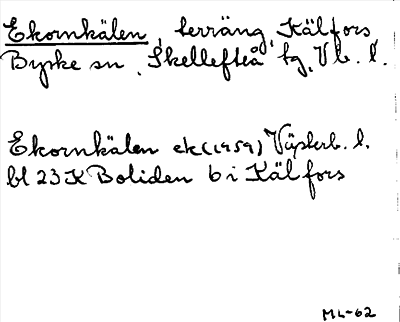 Ekornkälen, terräng, Kälfors,
Byske sn, Skellefteå tg, Vb. l.
Ekornkälen ek(1959) Västerb. l.
bl 23 K Boliden 6 i Kälfors
ML-62